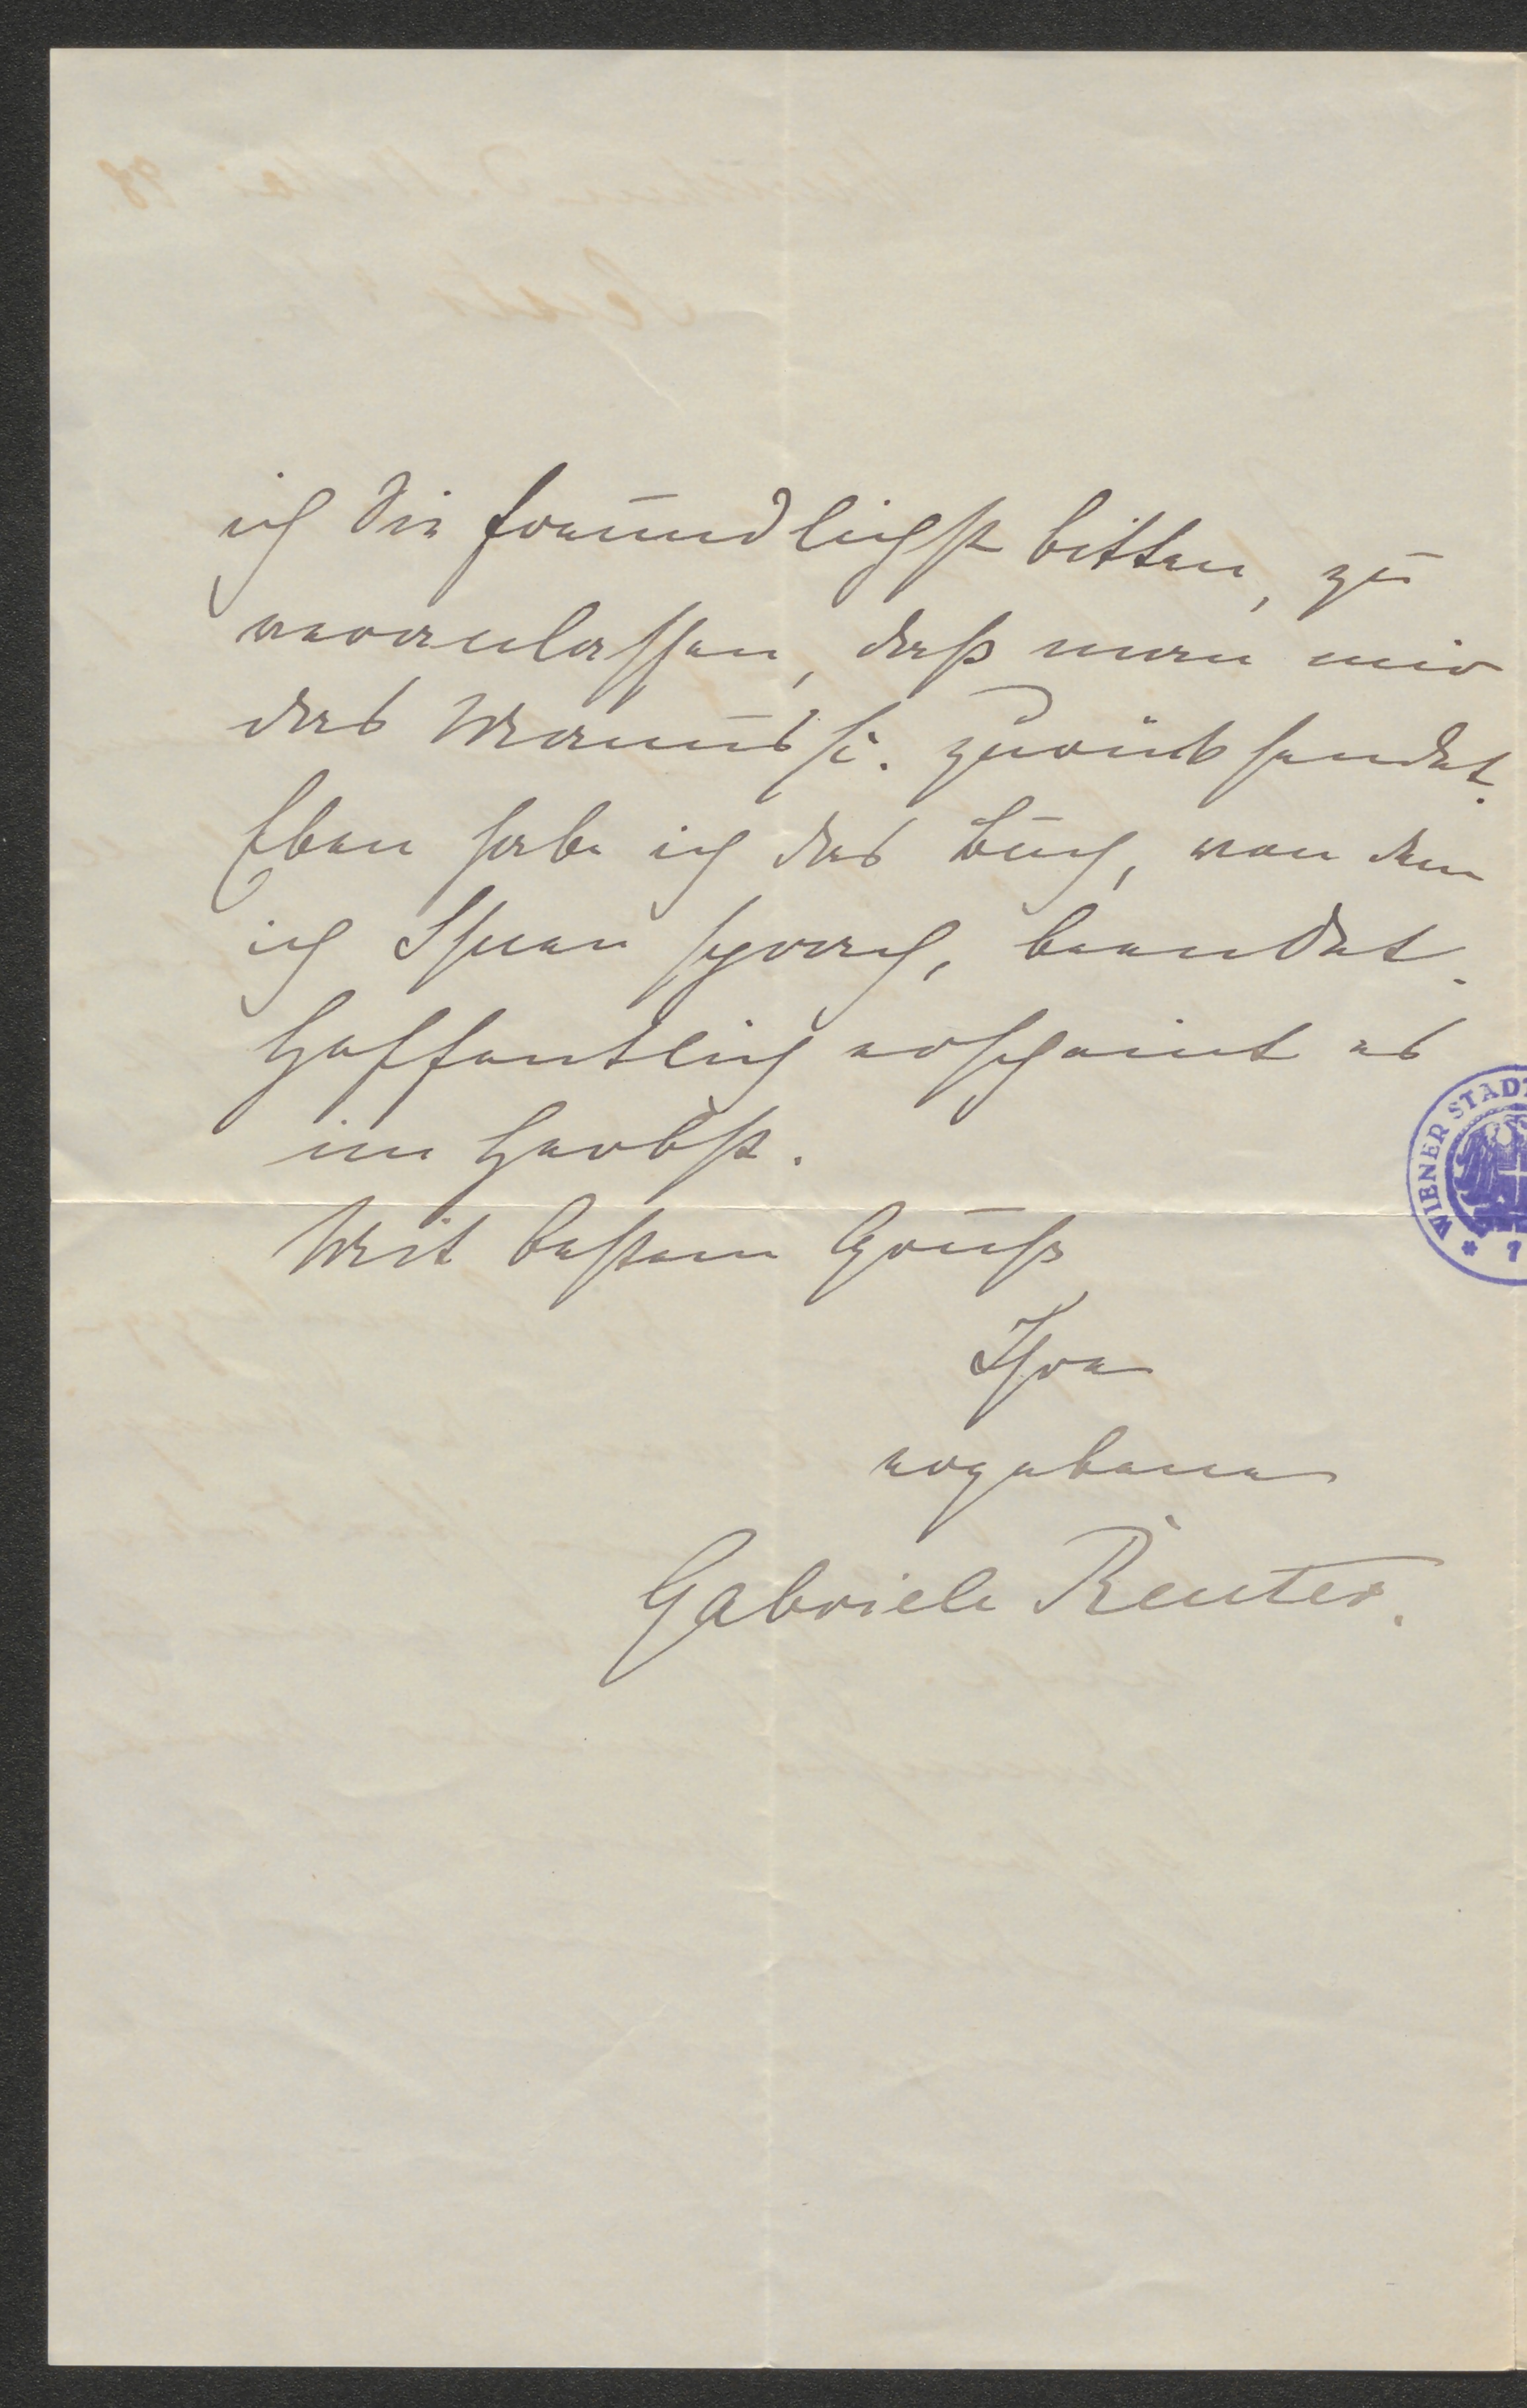 ich Sie freundlichst bitten, zu
veranlassen, daß man mir
das Manusk. zurücksendet.
Eben habe ich das Buch, von dem
ich Ihnen sprach, beendet.
Hoffentlich erscheint es
im Herbst.
Mit bestem Gruß
Ihre
ergebene
Gabriele Reuter.
WIENER STADT